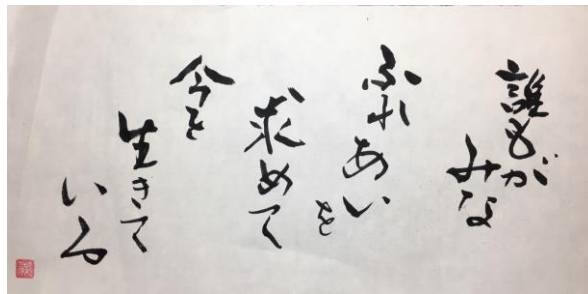 誰もが
みな
ふれ
あい
を
求めて
今を
生きて
いる